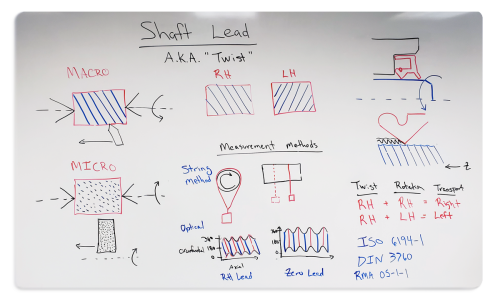 Shaft Lead
A.K.A. "Twist"
MACRO
RH
LH
MICRO
Measurement methods
String method
Optical
360°
Circumferential 180
0
Axial
RH Lead
360°
180
0
Zero Lead
z
Twist Rotation Transport
RH + RH = Right
RH + LH = Left
ISO 6194-1
DIN 3760
RMA OS-1-1